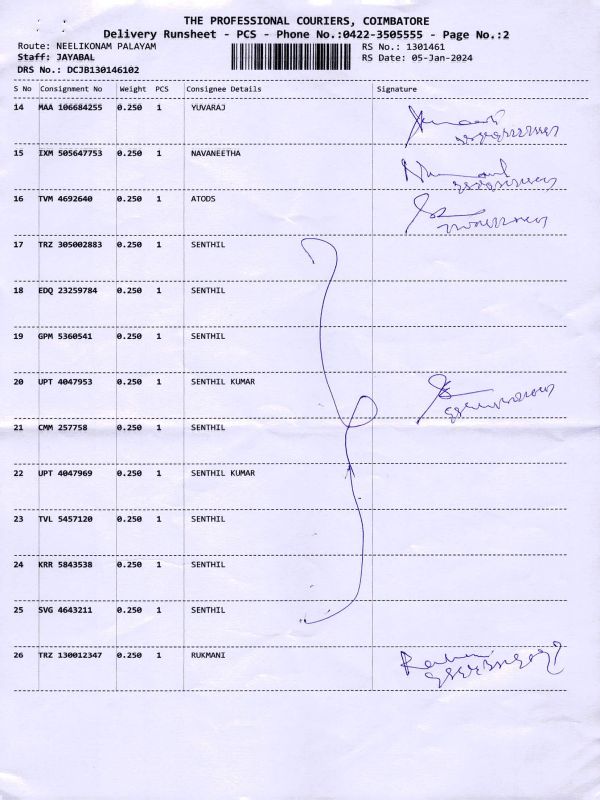 THE PROFESSIONAL COURIERS, COIMBATORE
Delivery Runsheet - PCS - Phone No.:0422-3505555 - Page No.:2
Route: NEELIKONAM PALAYAM RS No.: 1301461
Staff: JAYABAL RS Date: 05-Jan-2024
DRS No.: DCJB130146102
S No Consignment No Weight PCS Consignee Details Signature
14 MAA 106684255 0.250 1 YUVARAJ
15 IXM 505647753 0.250 1 NAVANEETHA
16 TVM 4692640 0.250 1 ATODS
17 TRZ 305002883 0.250 1 SENTHIL
18 EDQ 23259784 0.250 1 SENTHIL
19 GPM 5360541 0.250 1 SENTHIL
20 UPT 4047953 0.250 1 SENTHIL KUMAR
21 CMM 257758 0.250 1 SENTHIL
22 UPT 4047969 0.250 1 SENTHIL KUMAR
23 TVL 5457120 0.250 1 SENTHIL
24 KRR 5843538 0.250 1 SENTHIL
25 SVG 4643211 0.250 1 SENTHIL
26 TRZ 130012347 0.250 1 RUKMANI